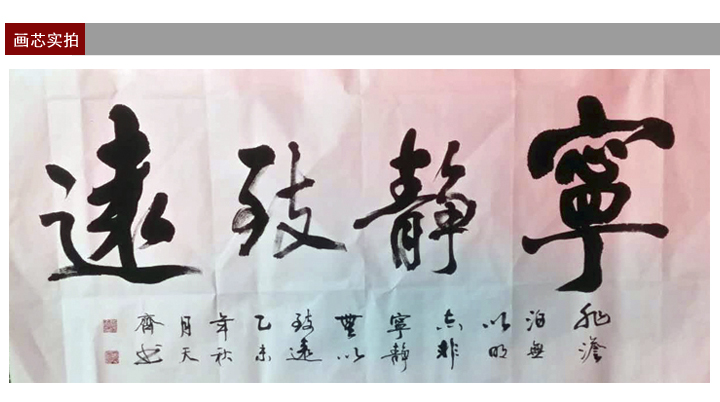 画芯实拍
寧靜致遠
非澹
泊無
以明
志非
寧靜
無以
致遠
乙未
年秋
月天
齊书